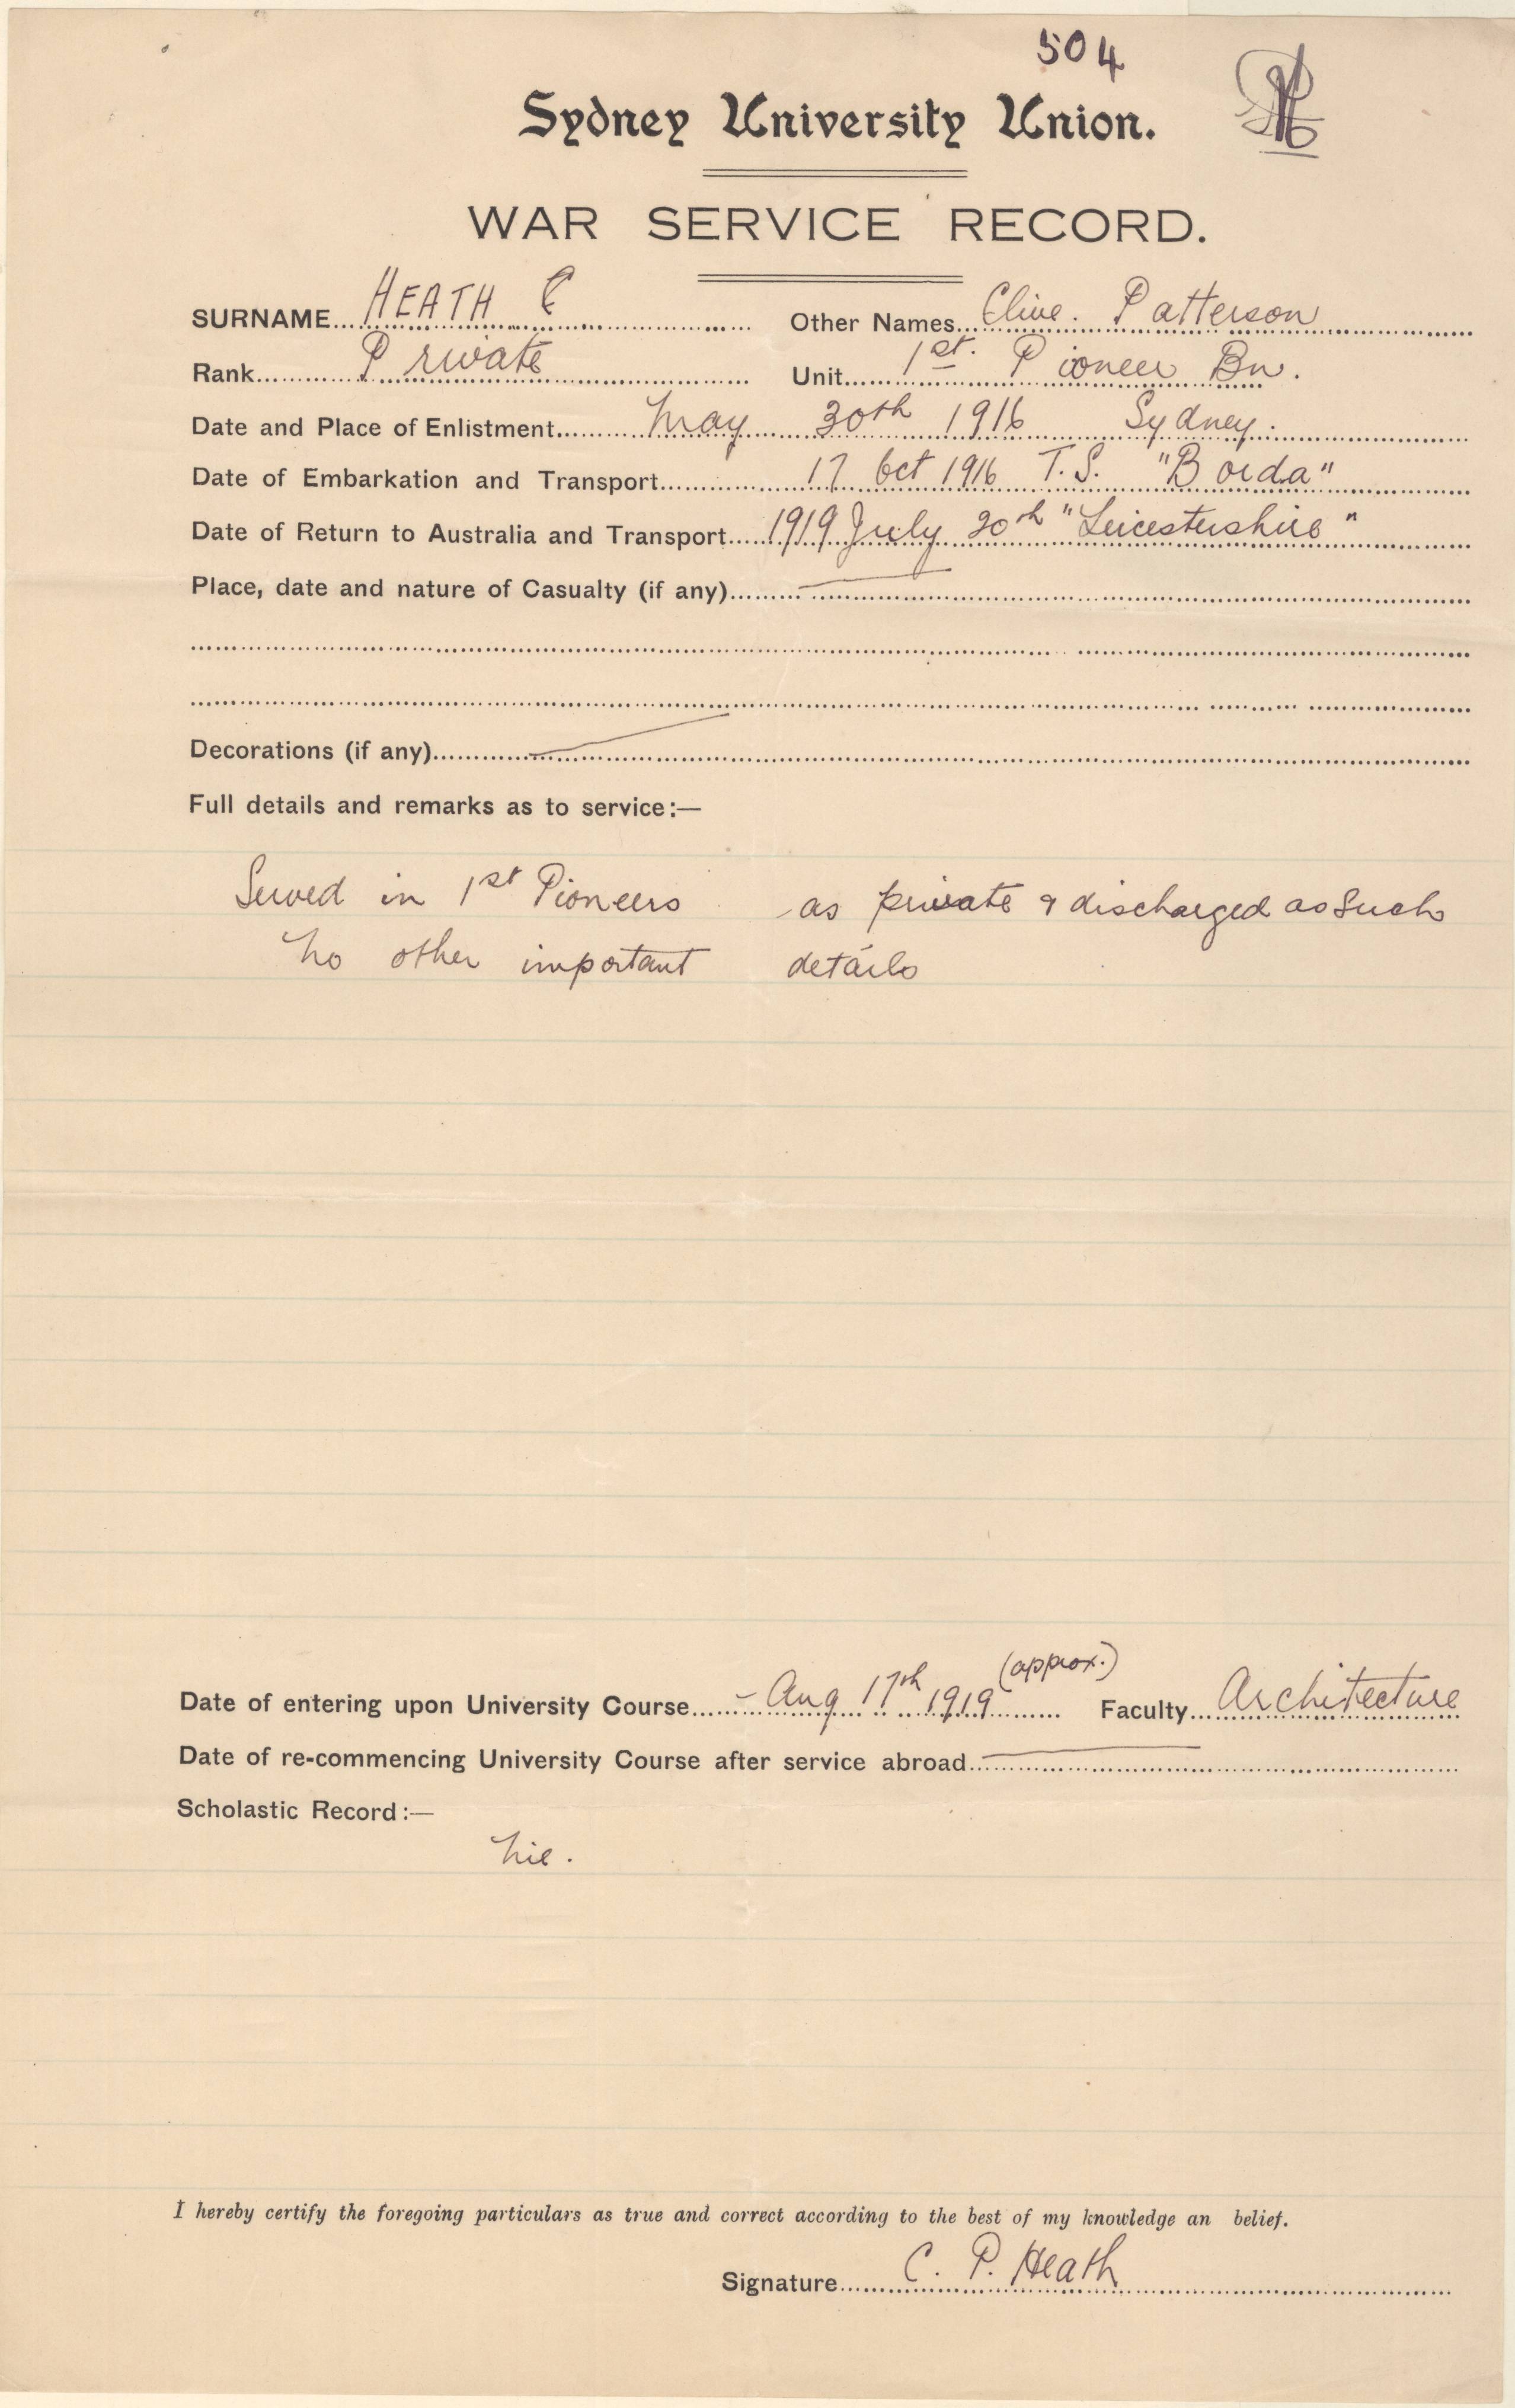 504
Sydney University Union.
WAR SERVICE RECORD.
SURNAME... HEATH C Other Names... Clive. Patterson
Rank... Private Unit... 1st. Pioneer Bn.
Date and Place of Enlistment... May 30th 1916 Sydney.
Date of Embarkation and Transport... 17 Oct 1916 T.S. "Borda"
Date of Return to Australia and Transport... 1919 July 20th "Leicestershire"
Place, date and nature of Casualty (if any)...
Decorations (if any)...
Full details and remarks as to service:—
Served in 1st Pioneers as private & discharged as such
No other important details
(approx.)
Date of entering upon University Course... - Aug 17th 1919 Faculty... Architecture
Date of re-commencing University Course after service abroad...
Scholastic Record:—
Nil.
I hereby certify the foregoing particulars as true and correct according to the best of my knowledge an belief.
Signature... C. P. Heath